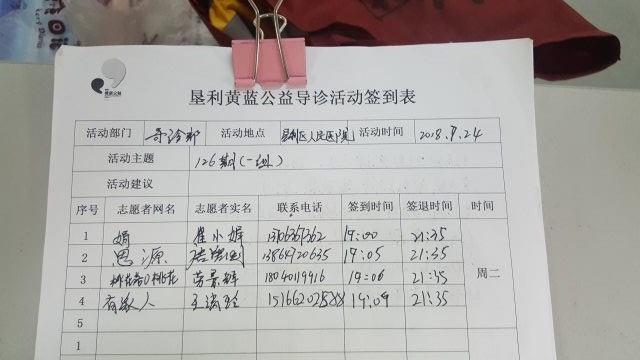 垦利黄蓝公益导诊活动签到表
活动部门 活动地点 垦利区人民医院 活动时间 2018.9.24
活动主题 126期(一组)
活动建议
序号 志愿者网名 志愿者实名 联系电话 签到时间 签退时间 时间
1 娟 崔小娟 19:00 21:35
2 思源 19:05 21:35
3 18040119916 19:06 21:35 周二
4 有缘人 19:09 21:35
5
1